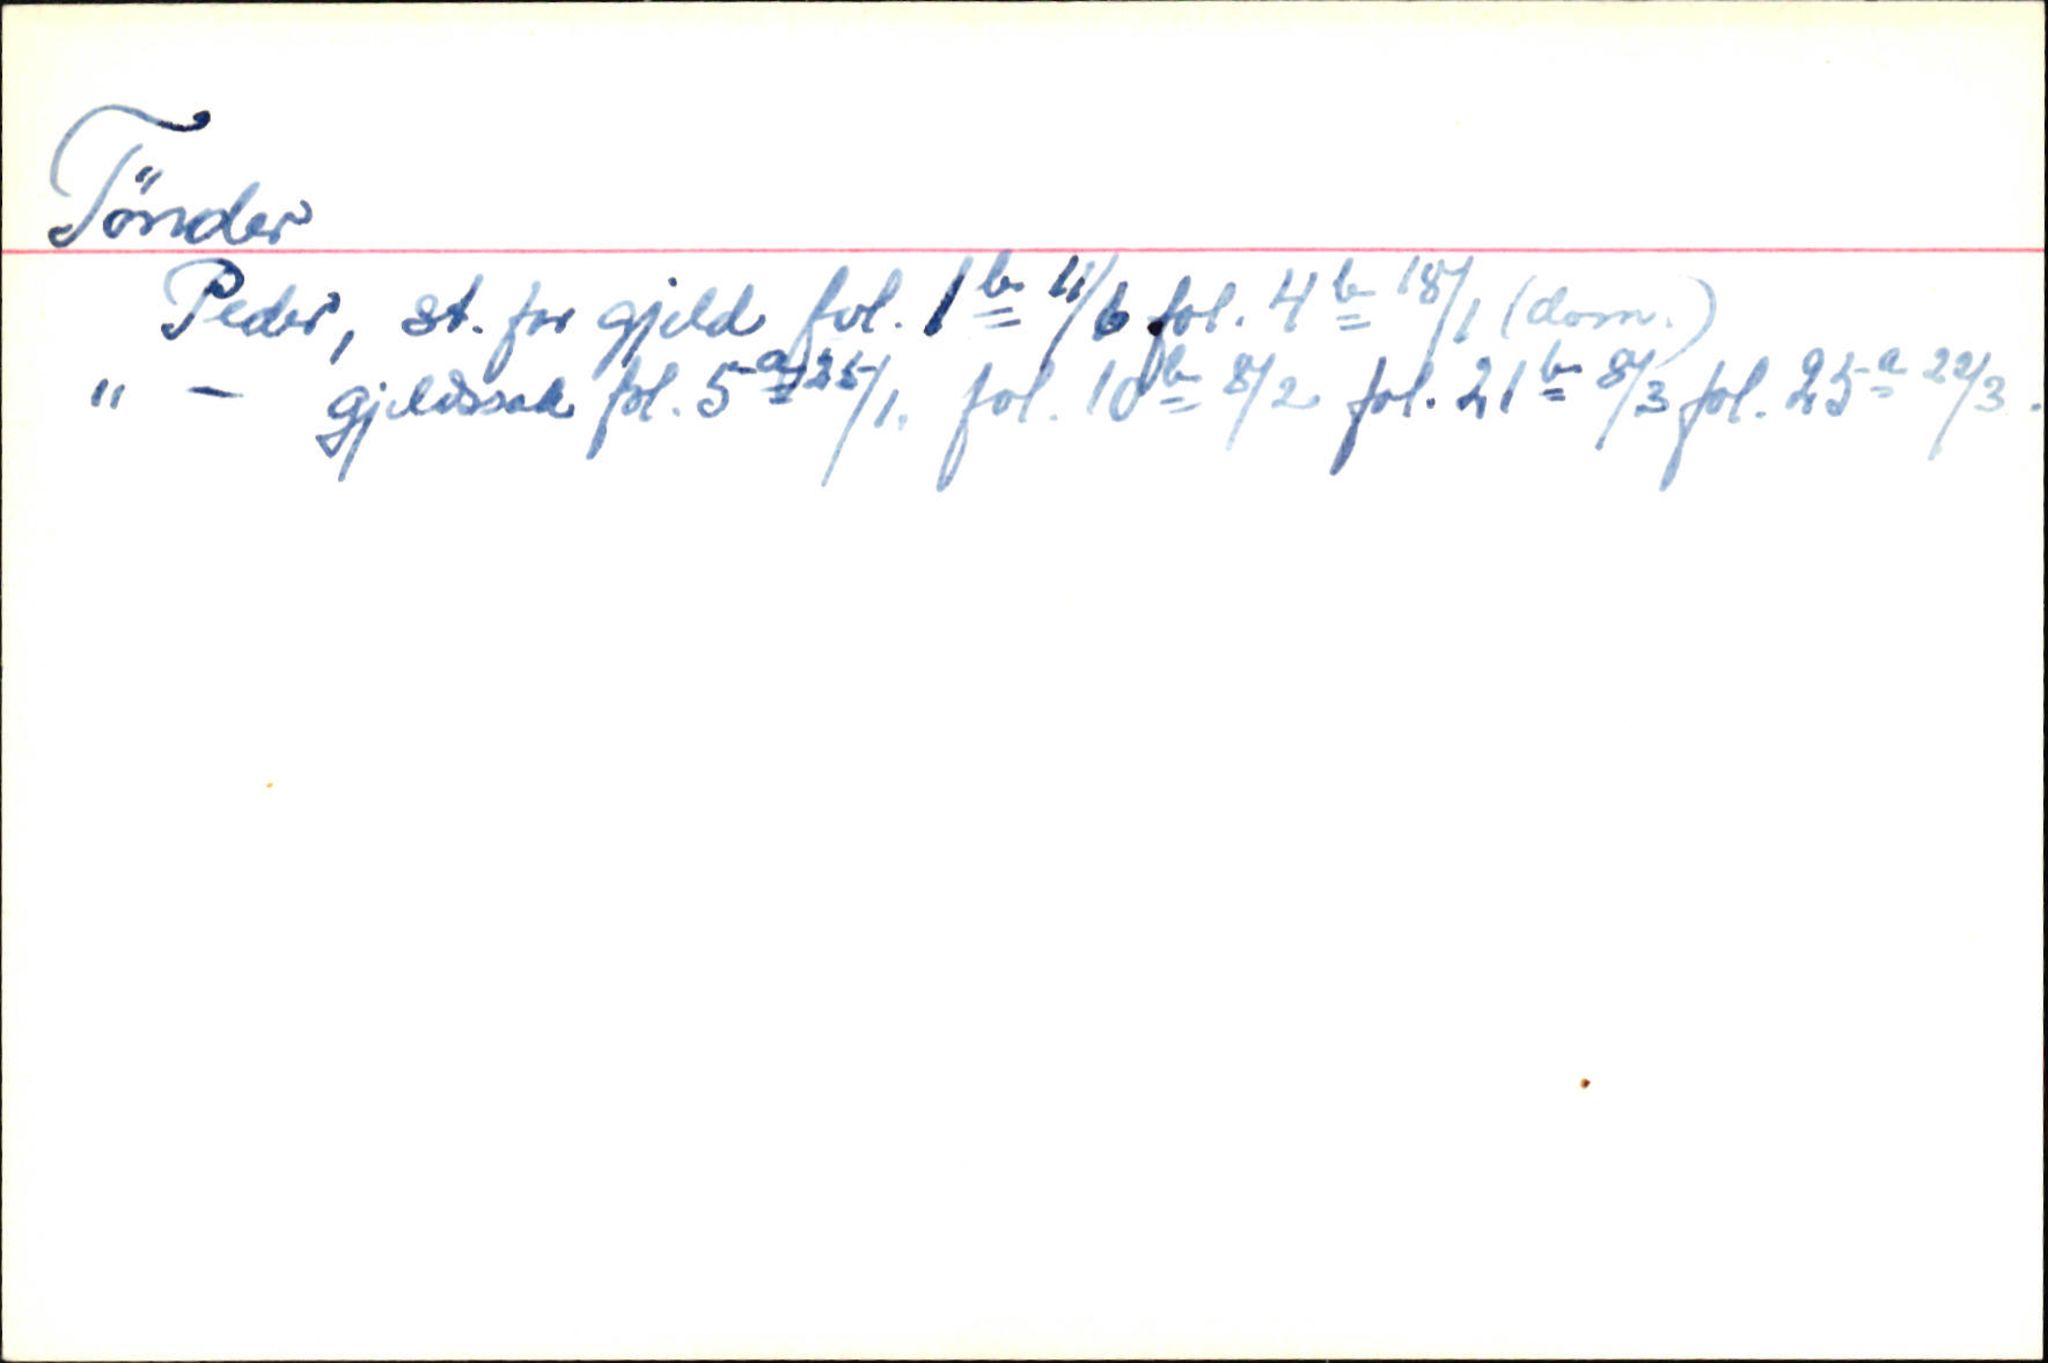 Tönder
Peder, st. for gjeld fol. 1b 11/6 fol. 4b 18/1 (dom.)
" - gjeldssak fol. 5a 25/1. fol. 10b 8/2 fol. 21b 8/3 fol. 25a 22/3.